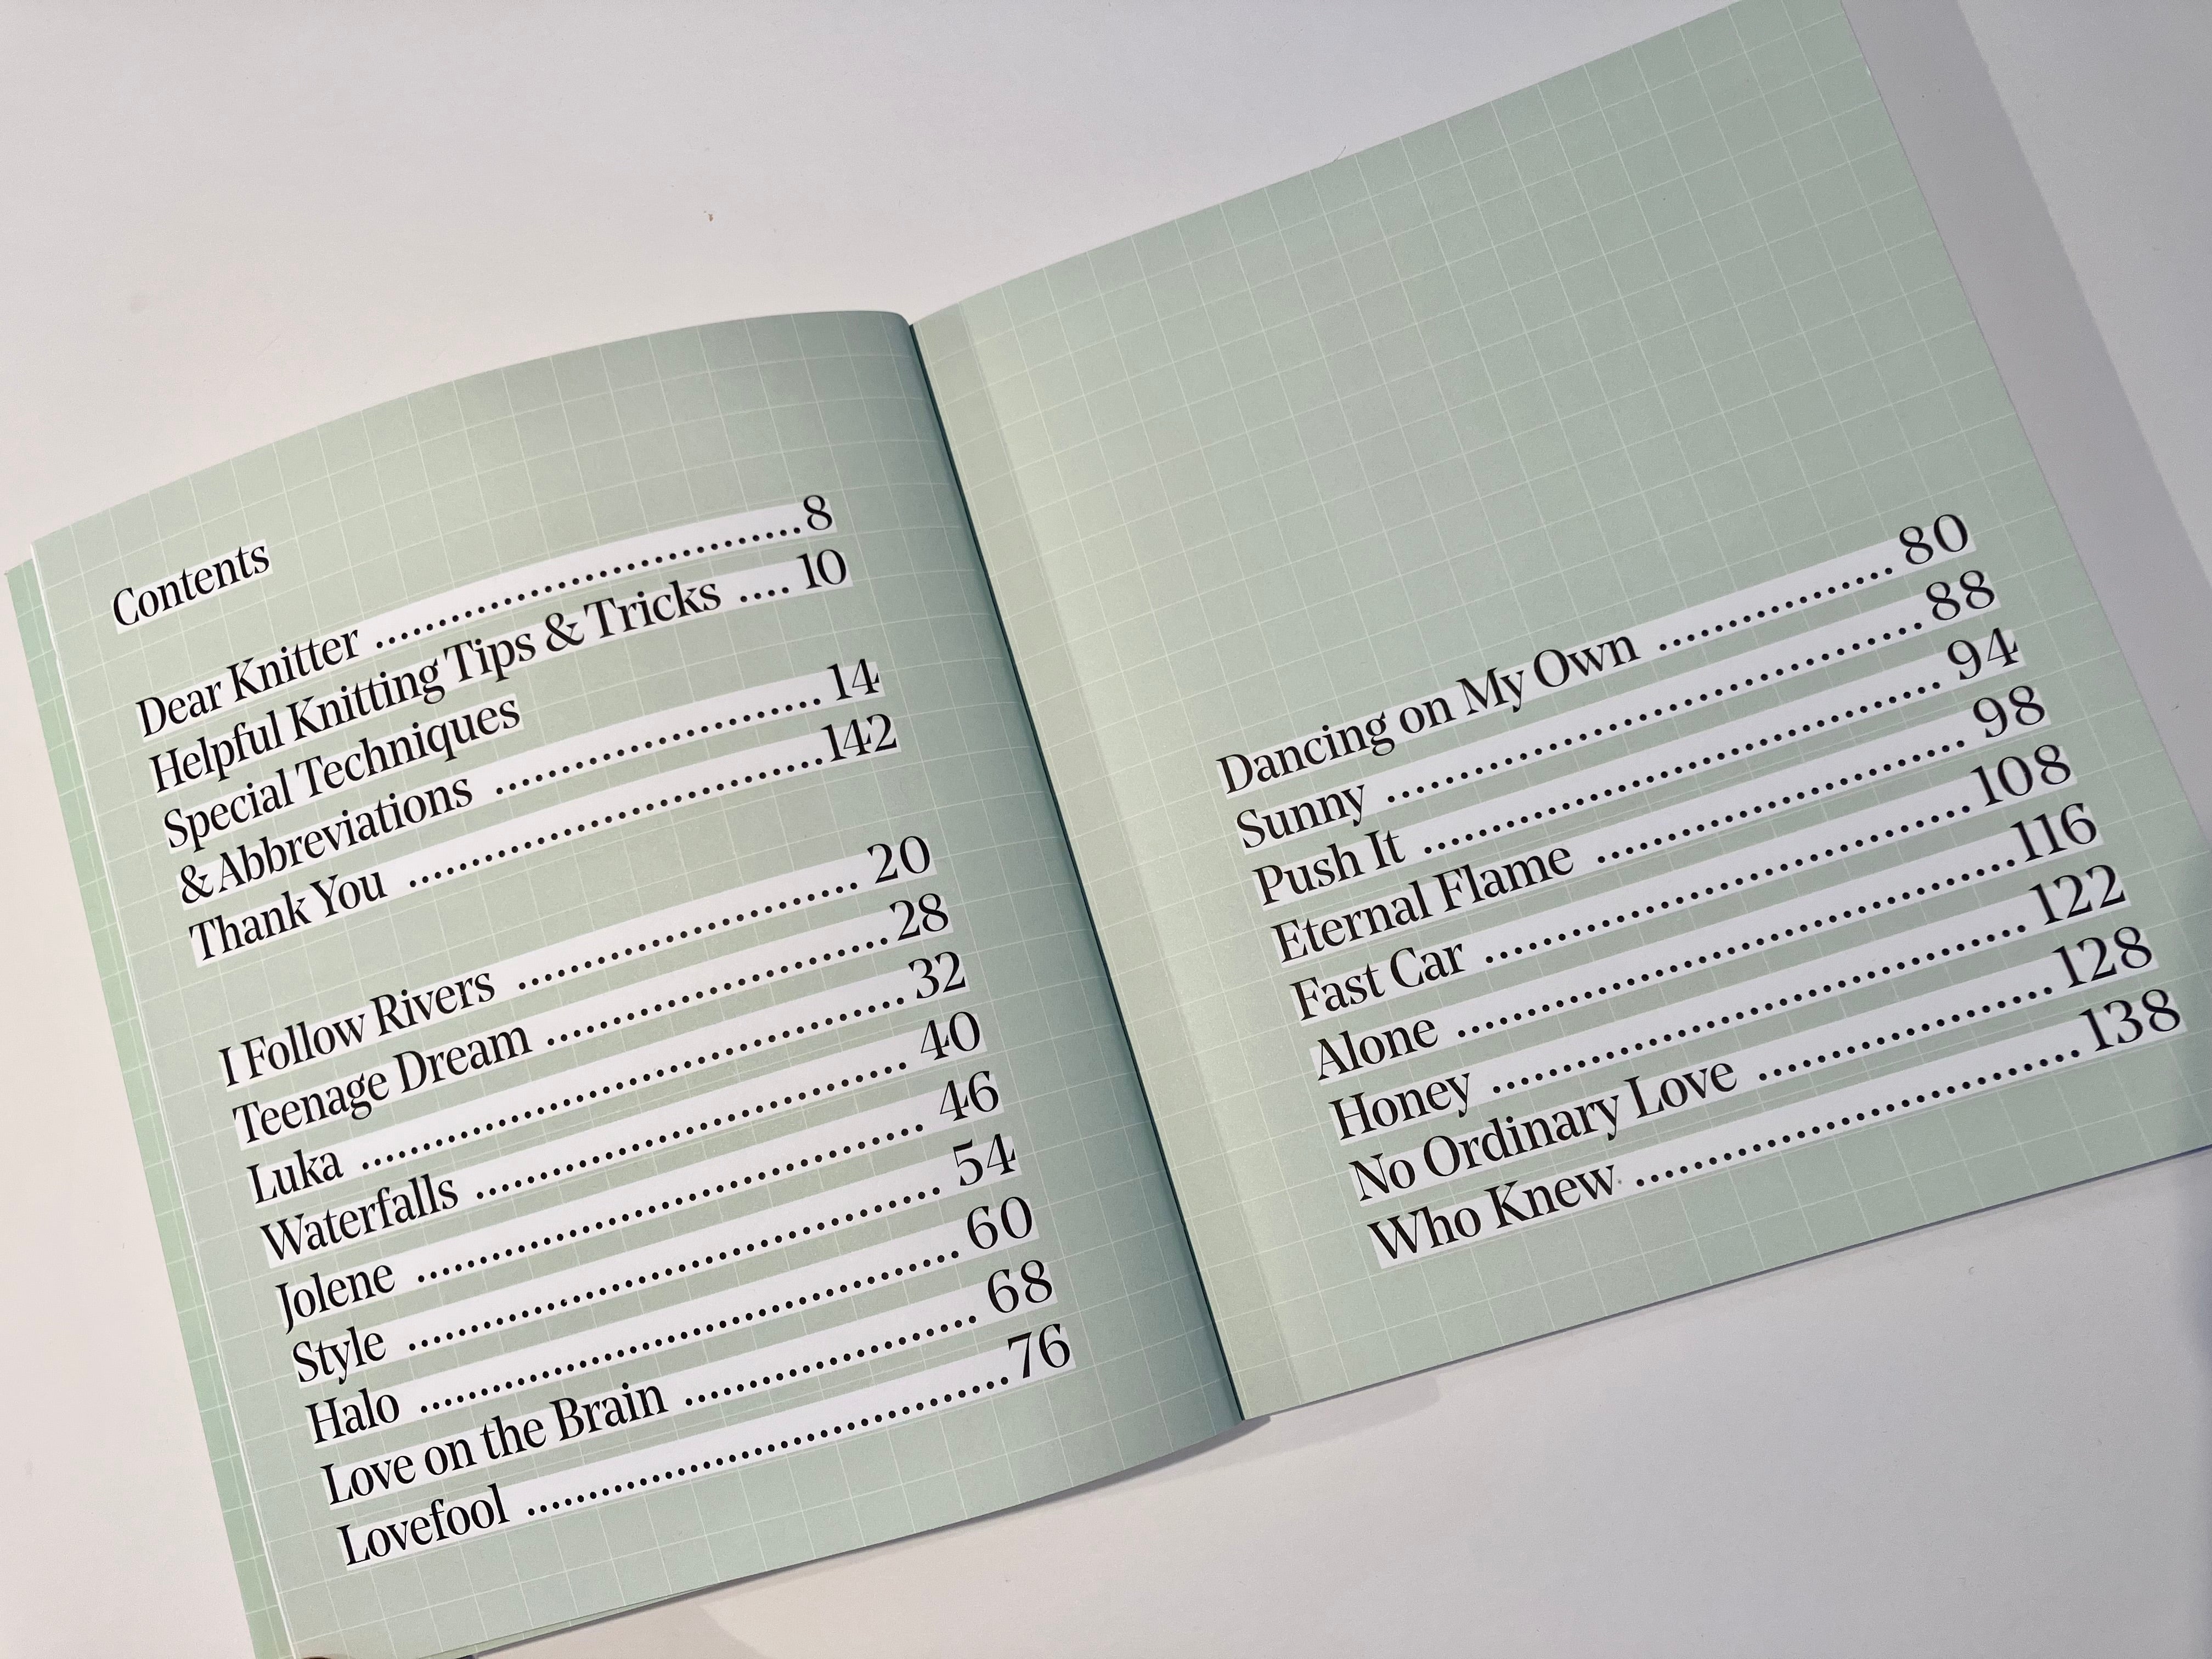 Contents
Dear Knitter ........................................8
Helpful Knitting Tips & Tricks .... 10
Special Techniques
& Abbreviations ............................... 14
Thank You .......................................142
I Follow Rivers ............................... 20
Teenage Dream ...............................28
Luka ................................................. 32
Waterfalls ....................................... 40
Jolene .............................................. 46
Style ................................................ 54
Halo ................................................. 60
Love on the Brain ........................... 68
Lovefool .......................................... 76
Dancing on My Own ...................... 80
Sunny .............................................. 88
Push It ............................................. 94
Eternal Flame ................................. 98
Fast Car ..........................................108
Alone ...............................................116
Honey ..............................................122
No Ordinary Love ..........................128
Who Knew ......................................138